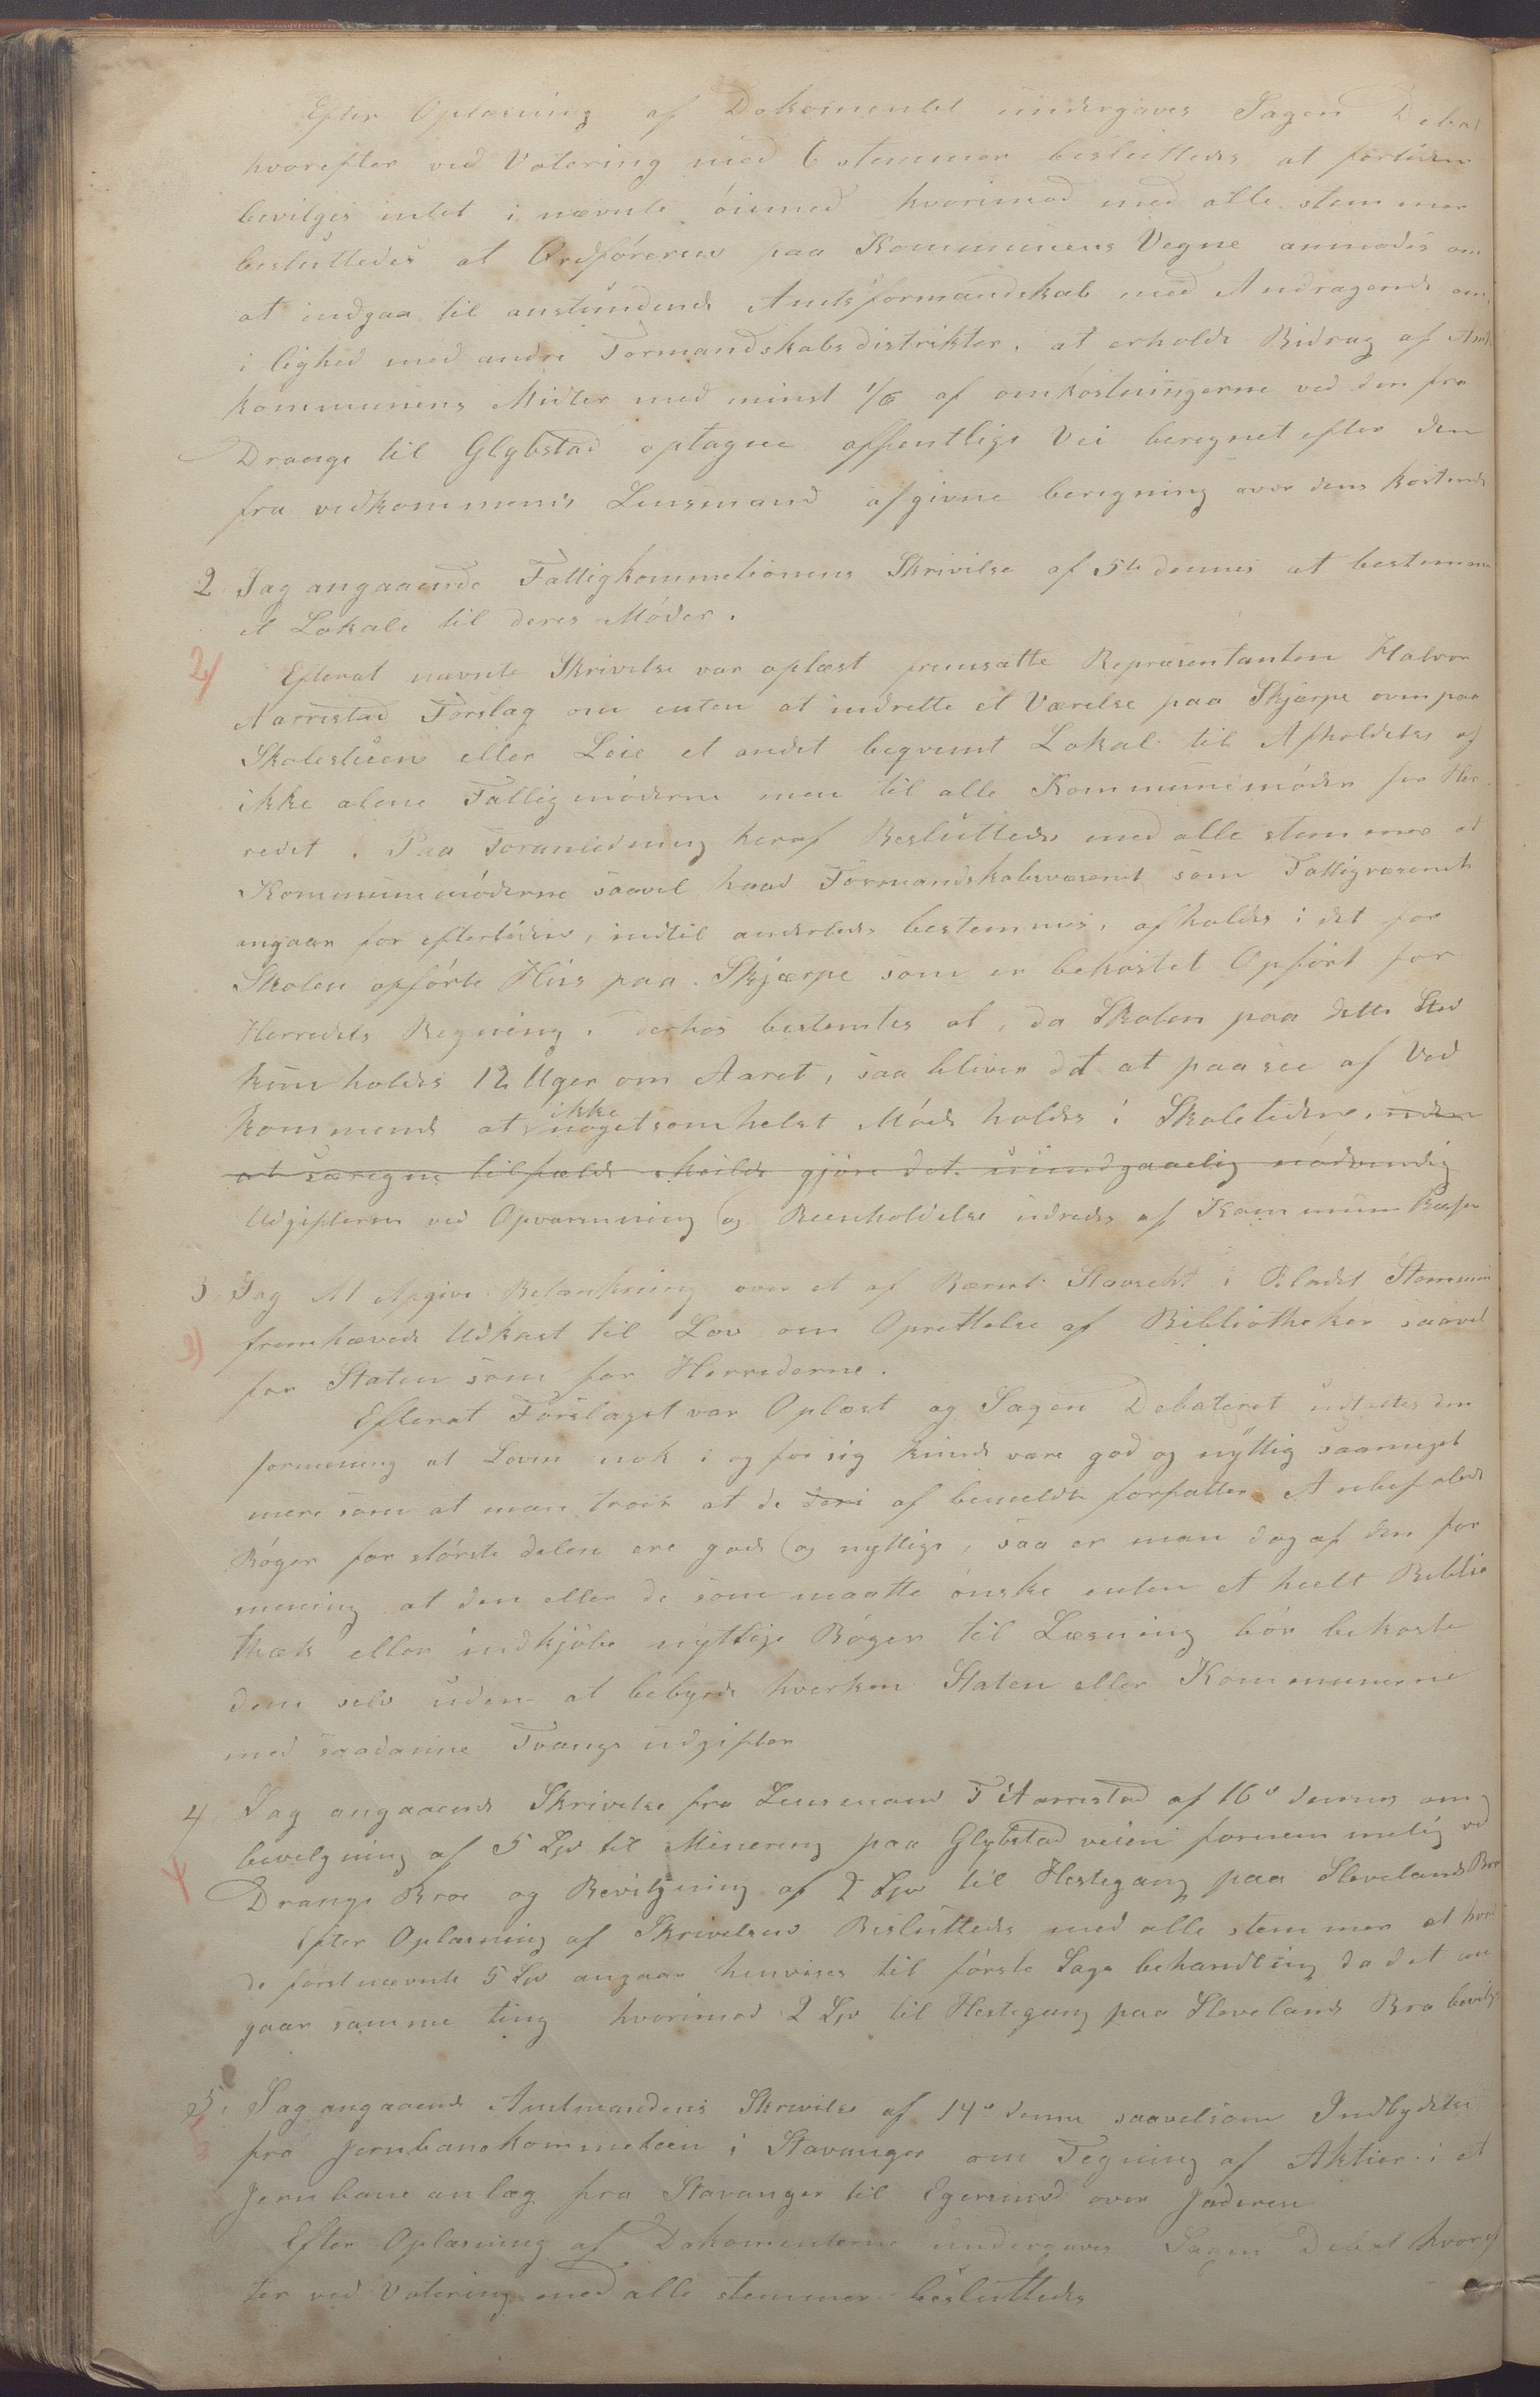 Efter Oplæsning af Dokumentet undergaves Sagen Debat
hvorefter ved Votering med 6 stemmer besluttedes at fortiden
bevilges intet i nævnte öiemed hvorimod med alle stemmer
besluttedes at Ordföreren paa Kommunens Vegne anmodes om
at indgaa til anstundende Amtsformandskab med Andragende om
i lighed med andre Formandskabsdistrikter, at erholde Bidrag af Amts
kommunens Midler med minst 1/6 af omkostningerne ved den fra
Drange til Glybstad optagne offentlige Vei beregnet efter den
fra vedkommende Lensmand afgivne beregning over dens kostende
2 Sag angaaende Fattigkommetionens Skrivelse af 5te dennes at bestemme
et Lokale til deres Möder.
2/ Efterat nævnte Skrivelse var oplæst fremsatte Repræsentanten Halvor
Aarrestad Forslag om enten at indrette et Værelse paa Skjærpe ovenpaa
Skolestuen eller Leie et andet beqvemt Lokal til Afholdelse af
ikke alene Fattigmöderne men til alle Kommunemöder for Her
redet. Paa Foranledning heraf Besluttedes med alle stemmer at
Kommunemöderne saavel hvad Formandskabsvæsenet som Fattigvæsenet
angaar for eftertiden, indtil anderledes bestemmes, afholdes i det for
Skolen opförte Hus paa Skjærpe som er bekostet Opfört for
Herredets Regning, derhos bestemtes at, da Skolen paa dette Sted
kun holdes 12 Uger om Aaret, saa bliver det at paasee af Ved
kommende at ikke nogetsomhelst Möde holdes i Skoletiden, uden
at særegne tilfælde skulde gjöre det uundgaaelig nödvendig
Udgifterne ved Opvarmning og Reenholdelse udredes af Kommunekassen
3 Sag At Afgive Betænkning over et af Bernt Stavseth i Bladet Stemmen
3) fremhævede Udkast til Lov om Oprettelse af Bibliotheker saavel
for Staten som for Herrederne.
Efterat Forslaget var Oplæst og Sagen Debateret udtaltes den
formening at Loven nok i og for sig kunde være god og nyttig saameget
mere som at man troer at de deri af bemeldte forfatter Anbefalede
Böger for störste delen ere gode og nyttige, saa er man dog af den for
mening at den eller de som maatte önske enten et heelt Biblio
thæk eller indkjöbe nyttige Böger til Læsning bör bekoste
dem selv uden at bebyrde hverken Staten eller Kommunerne
med saadanne Tvangs udgifter
4 Sag angaaende Skrivelse fra Lensmand T Aarrestad af 16de dennes om
bevilgning af 5 Spd til Minering paa Glybstad veien fornemmelig ved
4 Drange Broe og Bevilgning af 2 Spd til Hestegang paa Slevelands Bro
Efter Oplæsning af Skrivelsen Besluttedes med alle stemmer at hvad
de förstnævnte 5 Spd angaar henvises til förste Sags behandling da det an
gaar samme ting hvorimod 2 Spd til Hestegang paa Slevelands Bro bevilges
5. Sag angaaende Amtmandens Skrivelse af 14de denne saavelsom Indbydelse
5 fra Jernbanekommeteen i Stavanger om Tegning af Aktier i et
Jernbaneanlæg fra Stavanger til Egersund over Jæderen
Efter Oplæsning af Dokumenterne undergaves Sagen Debat hvoref
ter ved Votering med alle stemmer besluttedes